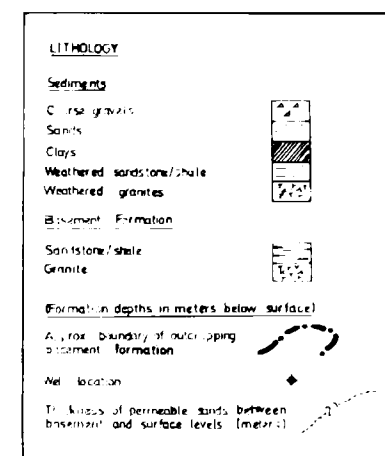 LITHOLOGY
Sediments
gravels
Sands
Clays
Weathered sandstone/shale
Weathered granites
Basement Formation
Sandstone/shale
Granite
(Formation depths in meters below surface)
Approx boundary of outcropping
basement formation
Well location
Thickness of permeable sands between
basement and surface levels (meters)